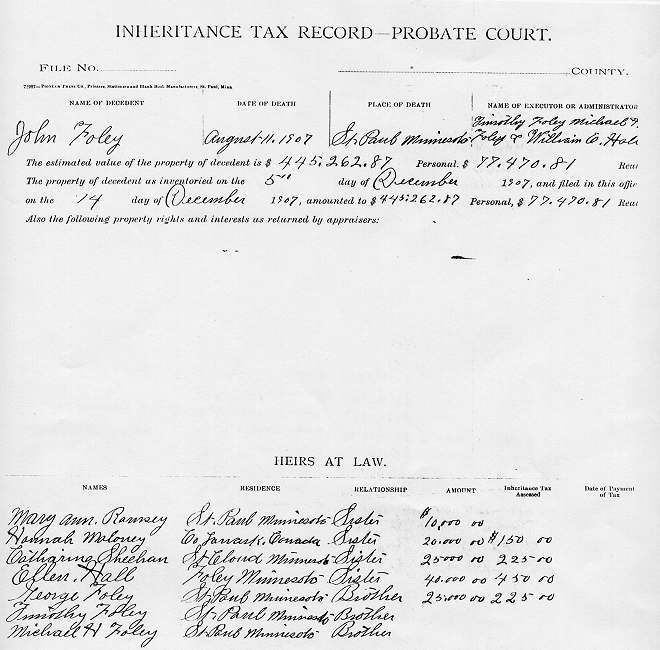 INHERITANCE TAX RECORD—PROBATE COURT.
FILE NO. COUNTY.
PIONEER PRESS CO., Printers, Stationers and Blank Book Manufacturers, St. Paul, Minn
NAME OF DECEDENT DATE OF DEATH PLACE OF DEATH NAME OF EXECUTOR OR ADMINISTRATOR
Timothy Foley Michael H.
John Foley August 11. 1907 St. Paul Minnesota Foley & William C.
The estimated value of the property of decedent is $ 445.262.87 Personal. $ 77.470.81 Rea
The property of decedent as inventoried on the 5" day of December 1907, and filed in this offic
on the 14 day of December 1907, amounted to $ 445.262.87 Personal, $ 77.470.81 Rea
Also the following property rights and interests as returned by appraisers:
HEIRS AT LAW.
NAMES RESIDENCE RELATIONSHIP AMOUNT Inheritance Tax Assessed Date of Payment of Tax
Mary Ann. Ramsey St. Paul Minnesota Sister $10,000 00
Hannah Maloney Co Lanark. Canada Sister 20.000 00 $150 00
Catharine Sheehan St Cloud Minnesota Sister 25000 00 225 00
Ellen. Hall Foley Minnesota Sister 40.000 00 450 00
George Foley St. Paul Minnesota Brother 25.000 00 225 00
Timothy Foley St. Paul Minnesota Brother
Michael H Foley St. Paul Minnesota Brother